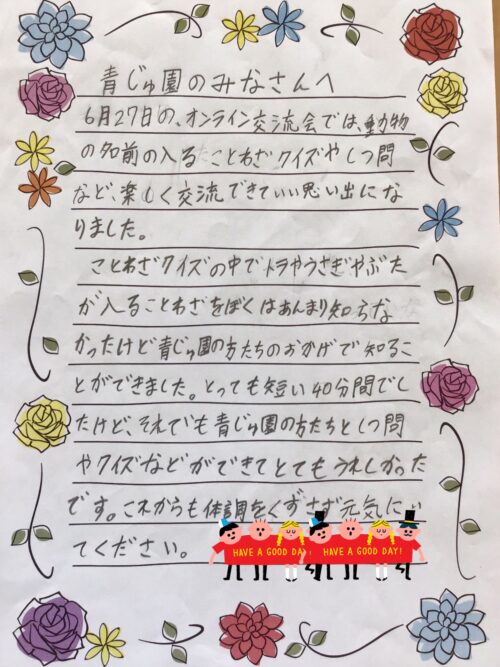 青じゅ園のみなさんへ
6月27日の、オンライン交流会では、動物
の名前の入ることわざクイズやしつ問
など、楽しく交流できていい思い出にな
りました。
ことわざクイズの中でトラやうさぎやぶた
が入ることわざをぼくはあんまり知らな
かったけど青じゅ園の方たちのおかげで知るこ
とができました。とっても短い40分間でし
たけど、それでも青じゅ園の方たちとしつ問
やクイズなどができてとてもうれしかった
です。これからも体調をくずさず元気にい
てください。
HAVE A GOOD DAY!
HAVE A GOOD DAY!